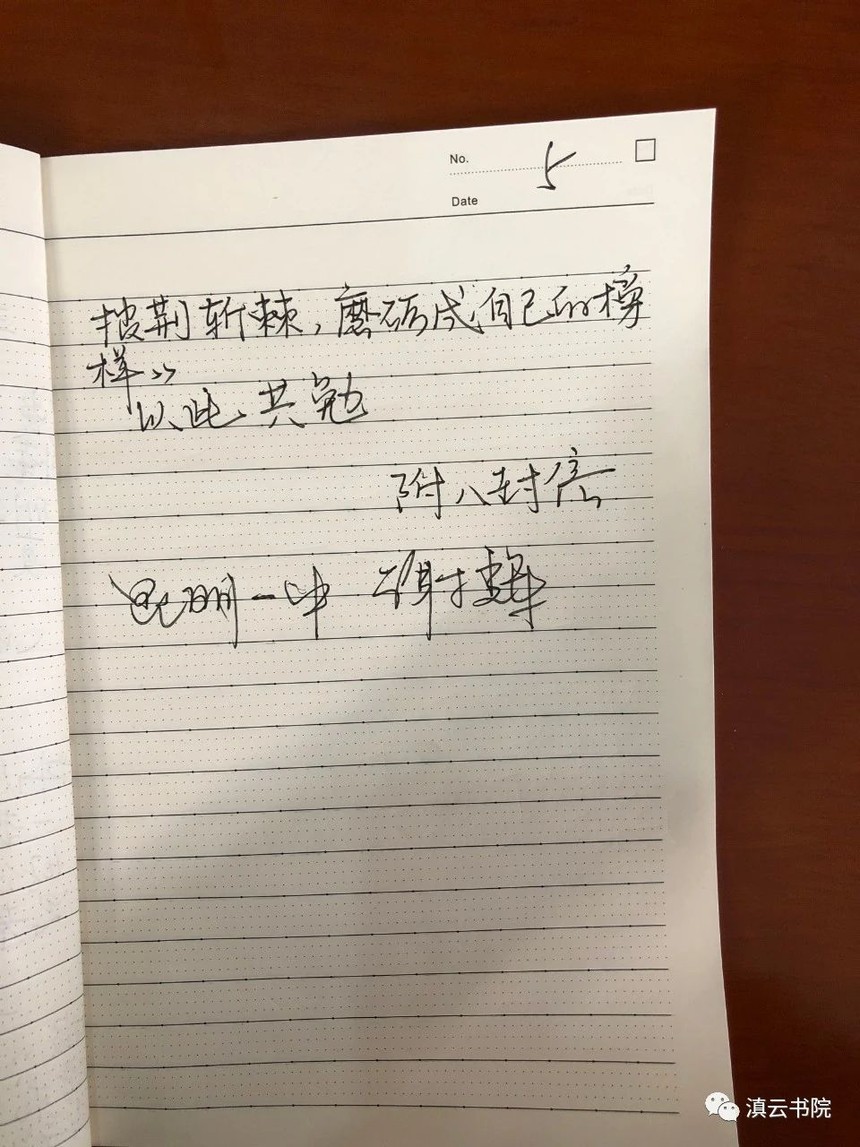 No. 5
Date
披荆斩棘，磨砺成自己的榜
样”
以此共勉
附八封信
昆明一中
滇云书院